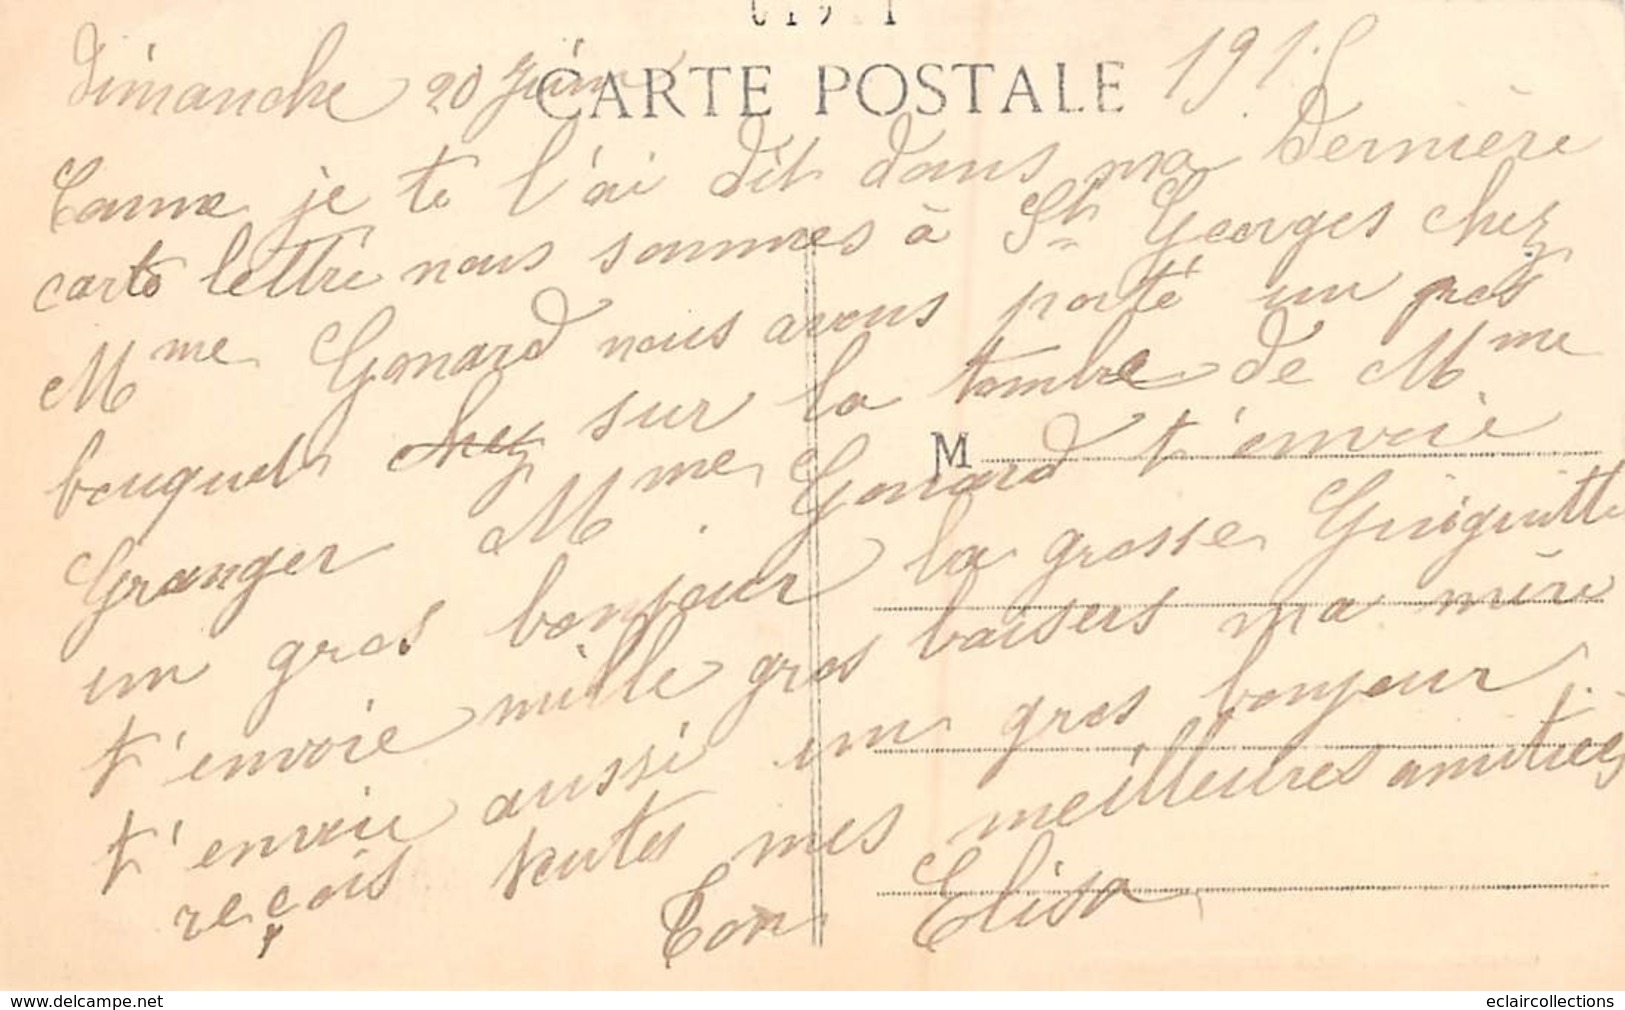 Dimanche 20 Juin 1915
CARTE POSTALE
Comme je te l'ai dit dans ma dernière
carte lettre nous sommes à St Georges chez
Mme Gonard nous avons porté un gros
bouquet chez sur la tombe de Mme
Granger Mme Gonard t'envoie
M
un gros bonjour la grosse Guiguitte
t'envoie mille gros baisers ma mère
t'envoie aussi un gros bonjour
reçois toutes mes meilleures amitiés
Ton Elisa
www.delcampe.net
eclaircollections